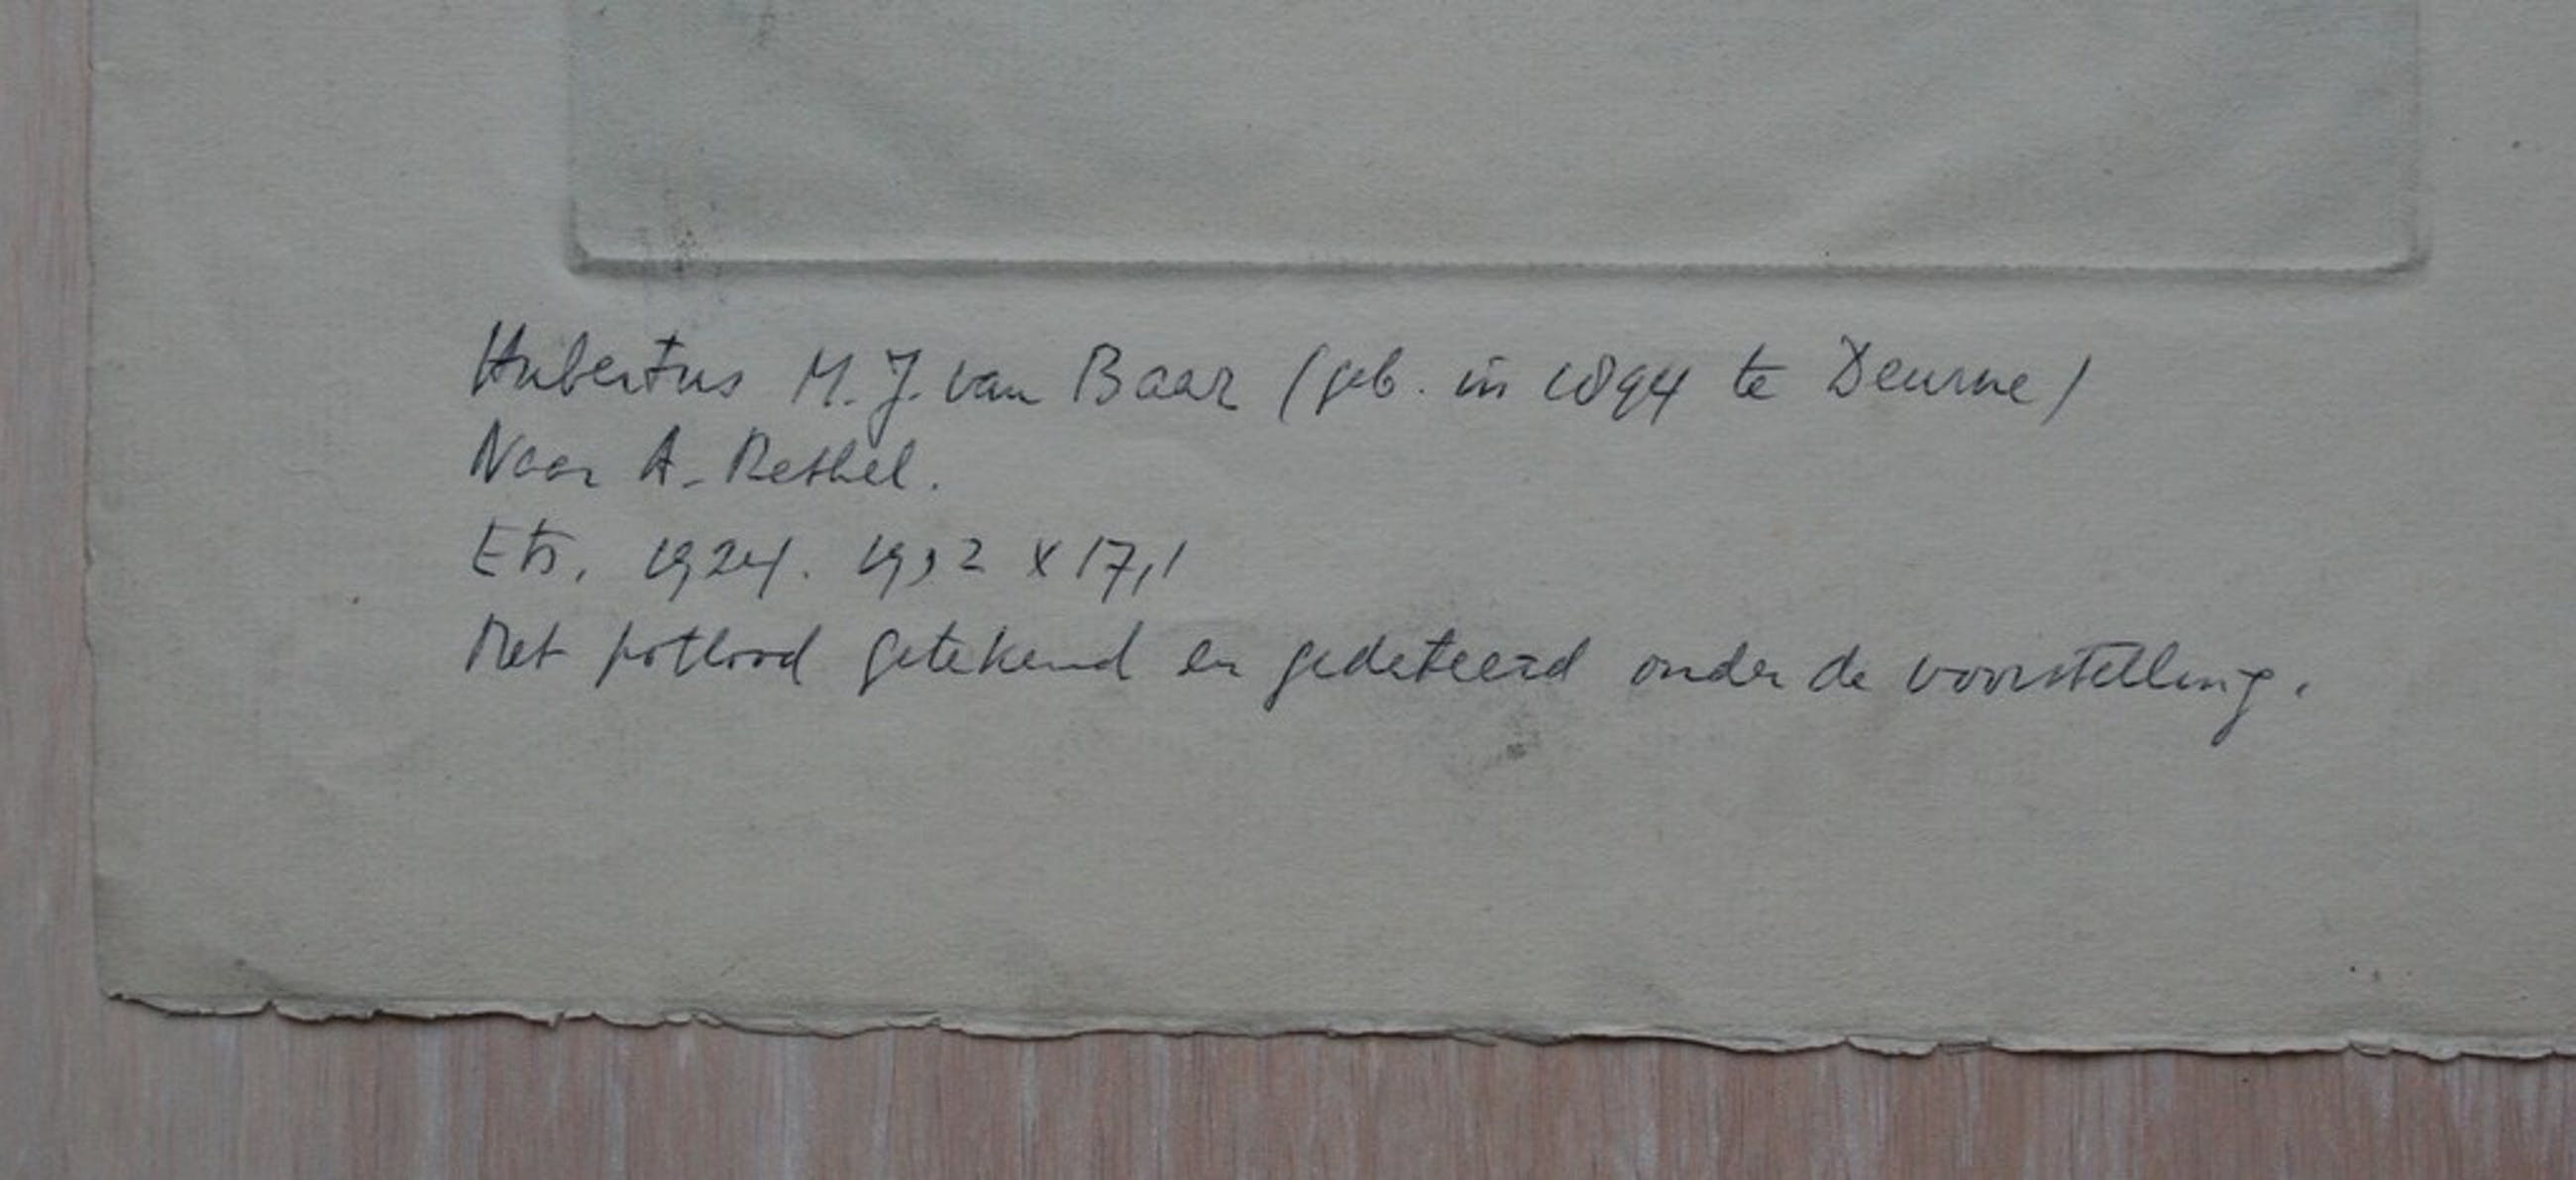 Hubertus M.J. van Baar (geb. in 1894 te Deurne)
Naar A. Rethel.
Ets. 1924. 19,2 x 17,1
Met potlood getekend en gedateerd onder de voorstelling.